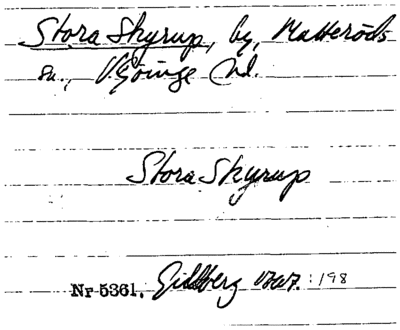 Stora Skyrup, by, Matteröds
sn., V. Göinge hd.
Stora Skyrup
Nr 5361. Gillberg 1767. : 198